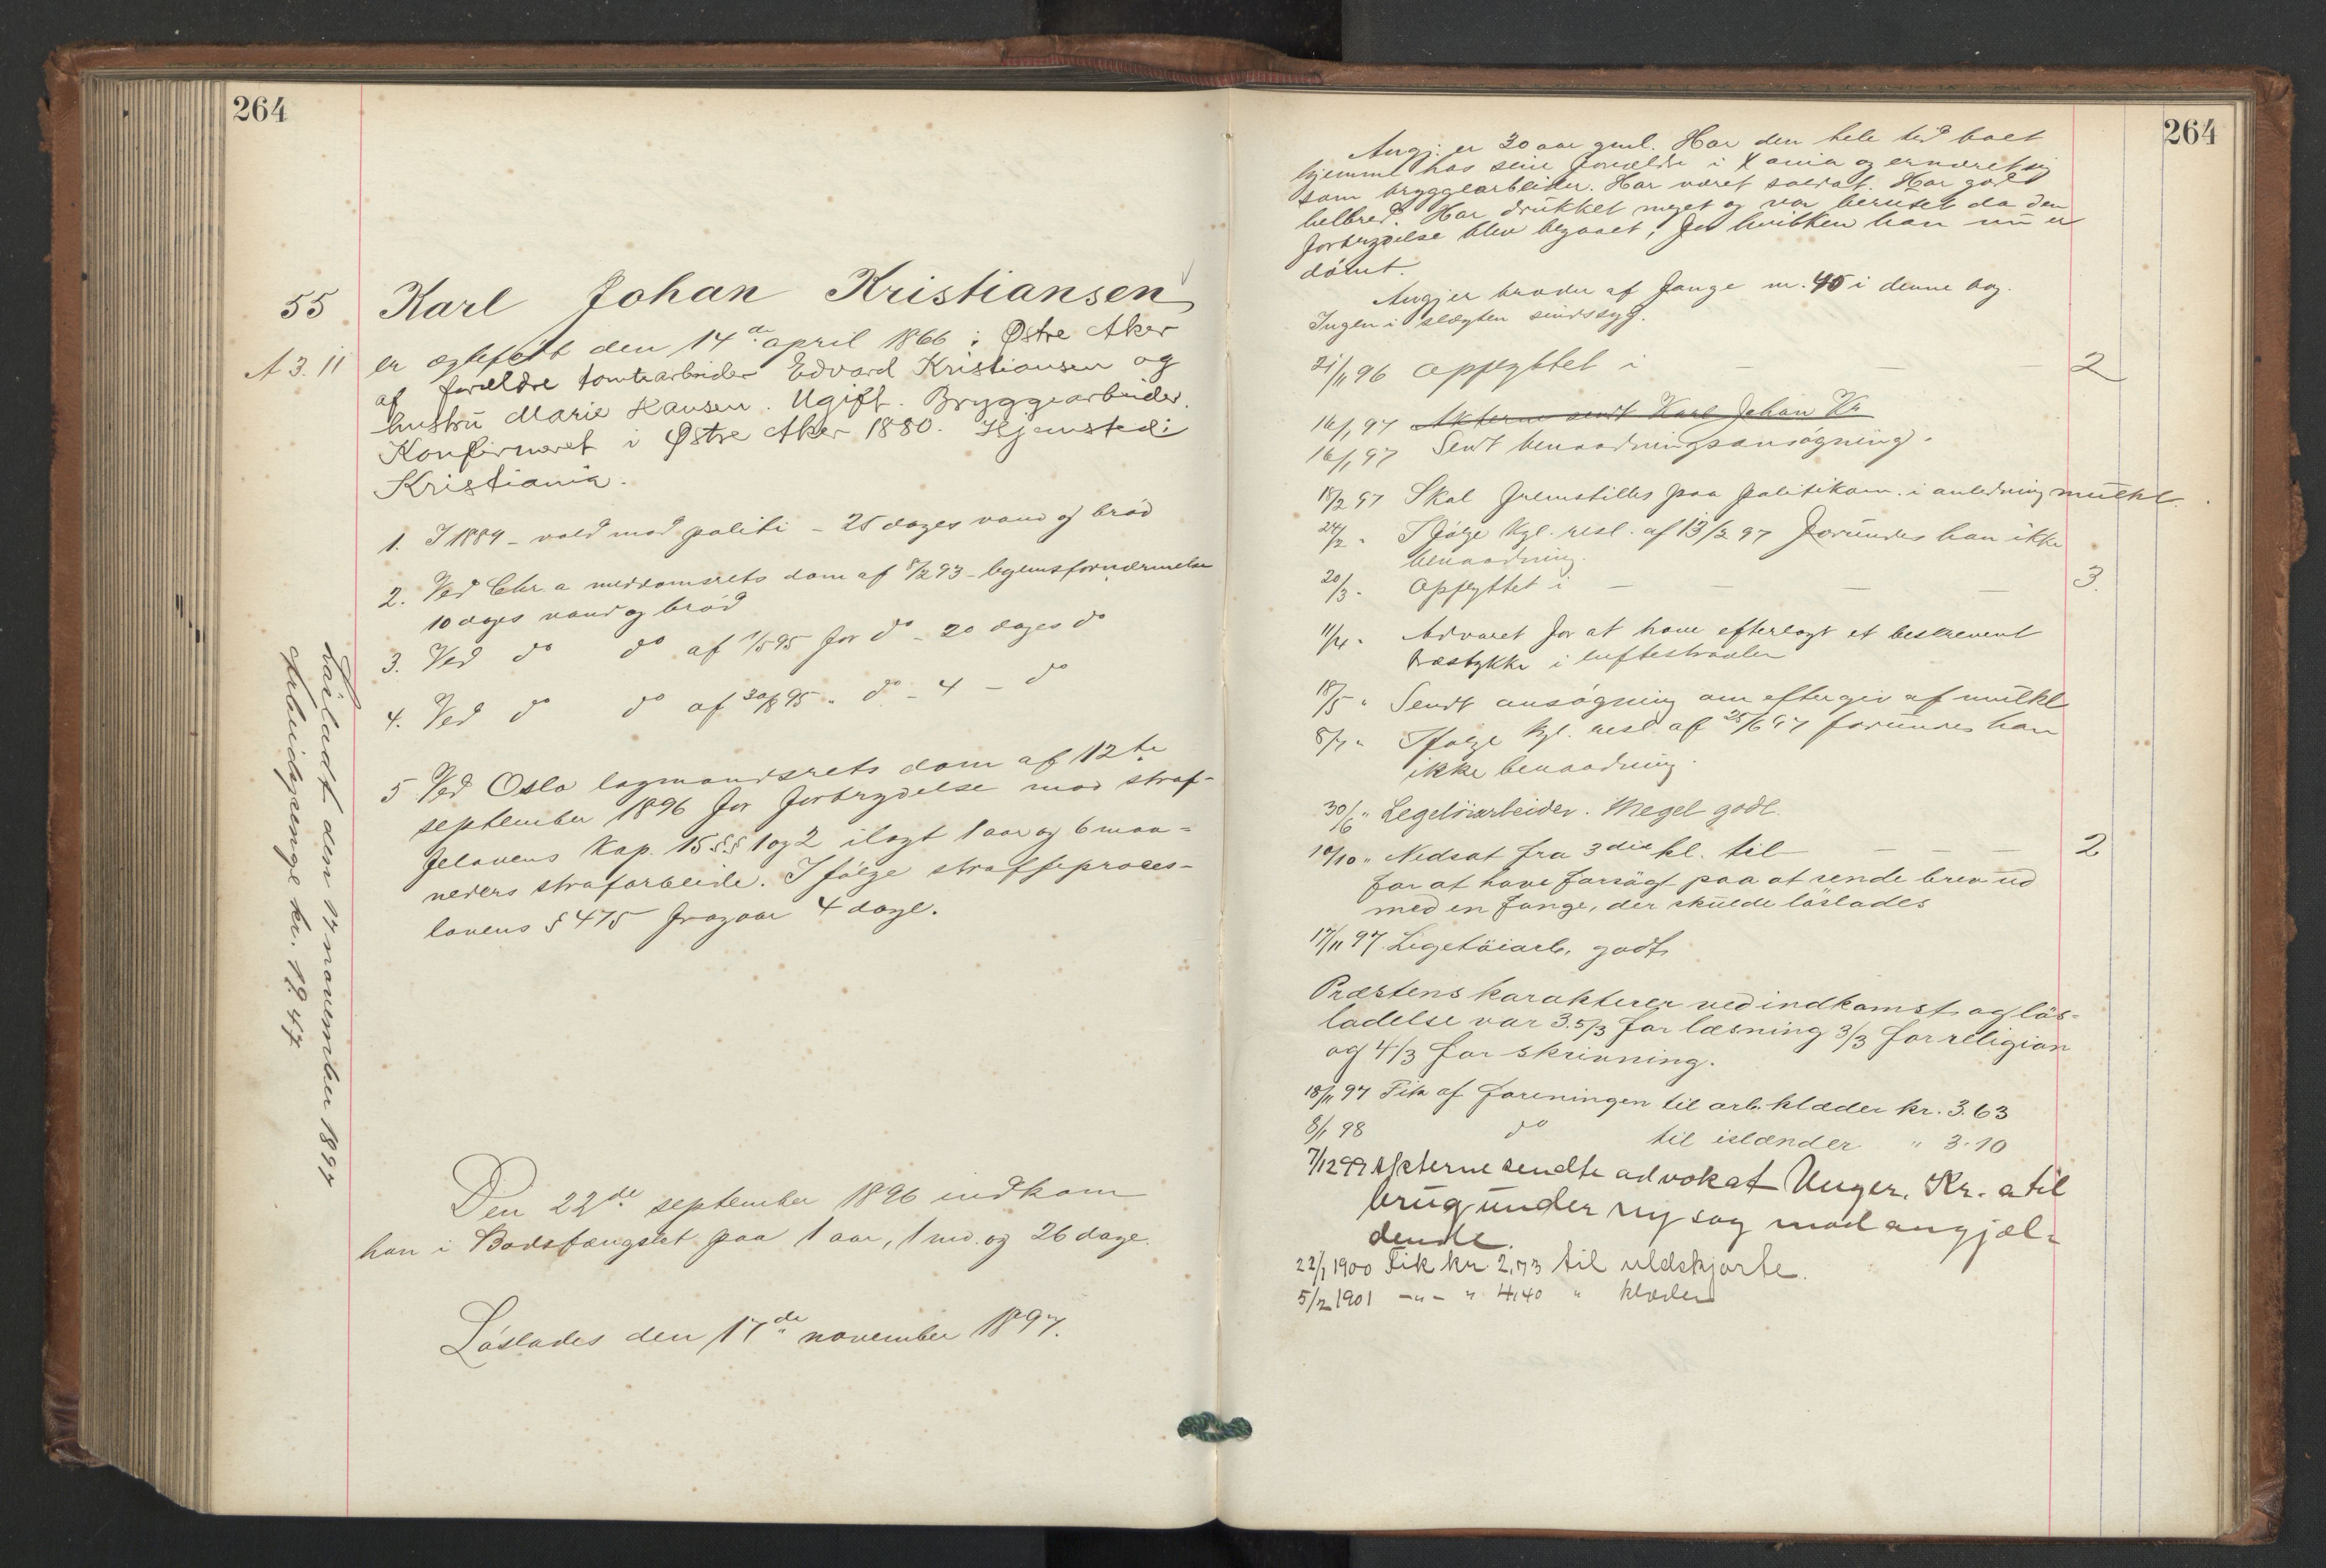 264
55 Karl Johan Kristiansen
A 3. 11 er ægtefødt den 14de april 1866 i Østre Aker
af forældre tomtearbeider Edvard Kristiansen og
hustru Marie Hansen. Ugift. Bryggearbeider.
Konfirmeret i Østre Aker 1880. Hjemsted i
Kristiania.
1. I 1884 - vold mod politi - 25 dages vand og brød
2. Ved Chr.a meddomsrets dom af 8/2 93 - legemsfornærmelse
10 dages vand og brød
3. Ved do do af 1/5 95 for do - 20 dages do
4. Ved do do af 30/8 95 " do - 4 - do
5 Ved Oslo lagmandsrets dom af 12te
september 1896 for forbrydelse mod straf-
felovens kap. 15 §§ 1 og 2 ilagt 1 aar og 6 maa-
neders strafarbeide. Ifølge straffeproces-
lovens § 475 fragaar 4 dage.
Den 22de september 1896 indkom
han i Bodsfængslet paa 1 aar, 1 md. og 26 dage.
Løslades den 17de november 1897.
Løsladt den 17 november 1897
Arbeidspenge kr. 19.47
264
Angj. er 30 aar gml. Har den hele tid boet
hjemme hos sine forældre i Xania og ernæret sig
som bryggearbeider. Har været soldat. Har godt
helbred. Har drukket meget og var beruset da den
forbrydelse blev begaaet, for hvilken han nu er
dømt.
Angj er broder af fange nr. 45 i denne bog.
Ingen i slægten sindssyg.
21/11 96 Opflyttet i — — — 2
16/1 97 Akterne sendt Karl Johan Kr
16/1 97 Sendt benaadningsansøgning.
18/2 97 Skal fremstilles paa politikam. i anledning mulkt.
24/2 " Ifølge kgl. resl. af 13/2 97 forundes han ikke
benaadning.
20/3 - Opflyttet i — — — 3.
11/4 " Advaret for at have efterlagt et beskrevent
træstykke i luftestraalen
18/5 " Sendt ansøgning om eftergiv af mulkt
8/7 " Ifølge kgl. resl. af 25/6 97 forundes han
ikke benaadning.
30/6 " Legetöiarbeider. Meget godt.
10/10 " Nedsat fra 3die kl. til — — — 2
for at have forsøgt paa at sende brev ud
med en fange, der skulde løslades
17/11 97. Legetöiarb. godt.
Præstens karakterer ved indkomst og løs-
ladelse var 3.5/3 for læsning 3/3 for religion
og 4/3 for skrivning.
18/11 97 Fik af foreningen til arb. klæder kr. 3.63
8/1 98 do til islænder " 3.10
7/12 99 Akterne sendte advokat Unger. Kr.a til
brug under ny sag mod angjæl-
dende.
22/1 1900 Fik kr. 2,73 til uldskjorte.
5/2 1901 -"- " 4,40 " klæder